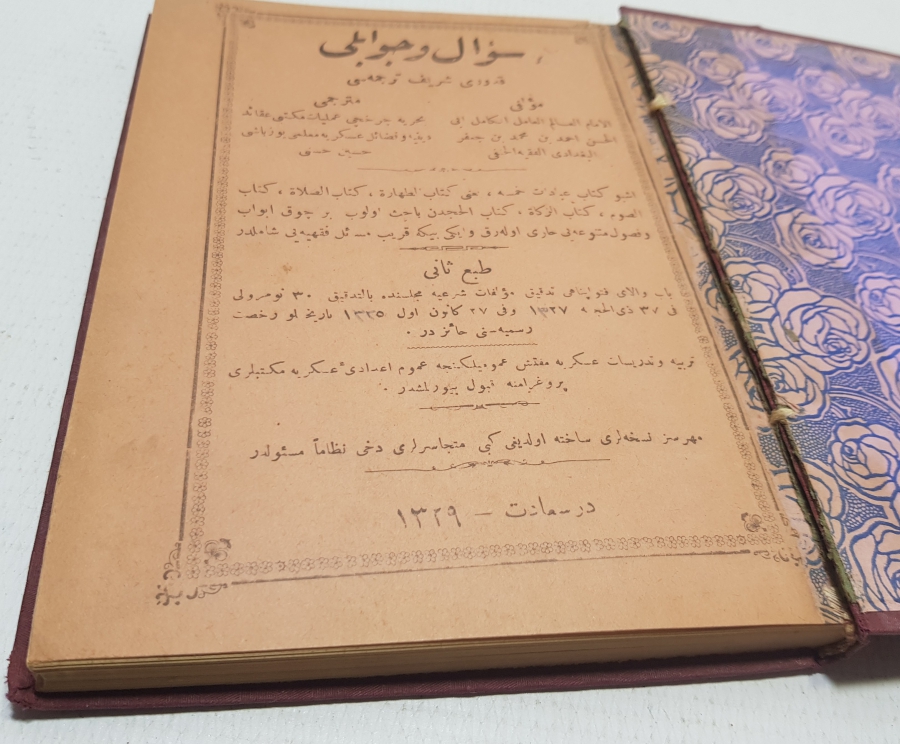 سؤال و جوابلی
قدوری شریف ترجمه‌سی
مؤلفی
الامام العالم العامل الکامل ابی
الحسن احمد بن محمد بن جعفر
البغدادی الفقیه الحنفی
مترجمی
بحریه چرخجی عملیات مکتبی عقائد
دینیه و فضائل عسکریه معلمی یوزباشی
حسین حسنی
اشبو کتاب عبادت خمسه ، یعنی کتاب الطهارة ، کتاب الصلاة ، کتاب
الصوم ، کتاب الزکاة ، کتاب الحجدن باحث اولوب بر چوق ابواب
وفصول متنوعه‌یی حاوی اوله‌رق و ایکی بیکه قریب مسائل فقهیه‌یی شاملدر
طبع ثانی
باب والای فتواپناهی تدقیق مؤلفات شرعیه مجلسنده بالتدقیق ٣٠ نومرولی
فی ٢٧ ذی الحجه ١٣٢٧ وفی ٢٧ کانون اول ١٣٢٥ تاریخلو رخصت
رسمیه‌یی حائزدر ٠
تربیه وتدریسات عسکریه مفتش عمومیلکنجه عموم اعدادیٔ عسکریه مکتبلری
پروغرامنه قبول بیورلمشدر ٠
مهرسز نسخه‌لری ساخته اولدیغی کبی متجاسرلری دخی نظاماً مسئولدر
درسعادت — ١٣٢٩